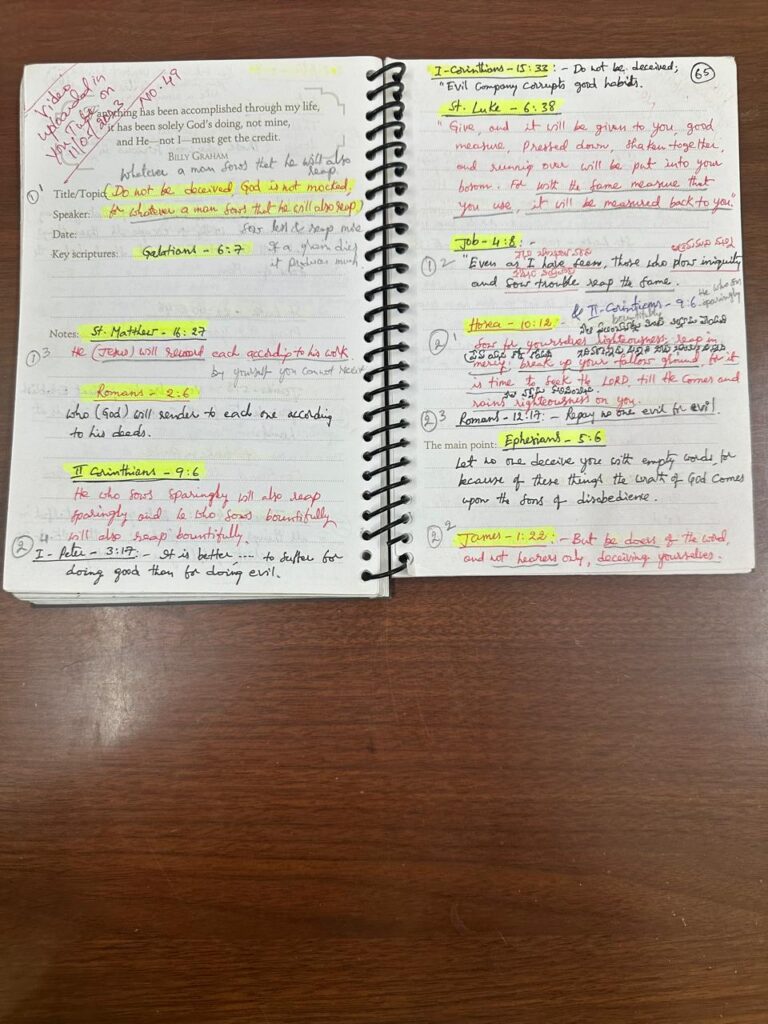 Video
uploaded in
You Tube on
11/05/2023
NO: 49
anything has been accomplished through my life,
it has been solely God's doing, not mine,
and He—not I—must get the credit.
BILLY GRAHAM
whatever a man sows that he will also
reap
① 1 Title/Topic (Do not be deceived, God is not mocked,
Speaker: for whatever a man sows that he will also reap)
Date: Sow less & reap more
Key scriptures: Galatians - 6:7 If a grain dies
it produces much
Notes: St. Matthew - 16:27
① 3 He (Jesus) will reward each according to his work.
by yourself you cannot
Romans - 2:6
who (God) will render to each one according
to his deeds.
II Corinthians - 9:6
He who sows sparingly will also reap
sparingly and he who sows bountifully
will also reap bountifully.
② 4 I - Peter - 3:17: - It is better .... to suffer for
doing good than for doing evil.
65
I - Corinthians - 15:33: - Do not be deceived;
"Evil Company corrupts good habits.
St. Luke - 6:38
"Give, and it will be given to you, good
measure, pressed down, shaken together,
and running over will be put into your
bosom. For with the same measure that
you use, it will be measured back to you."
Job - 4:8: -
① 2 "Even as I have seen, those who plow iniquity
and sow trouble reap the same.
& II - Corinthians - 9:6 He who sow
sparingly
bountifully
Hosea - 10:12: -
② 1 Sow for yourselves righteousness; reap in
mercy; break up your fallow ground, for it
is time to seek the LORD, till He comes and
rains righteousness on you.
② 3 Romans - 12:17: - Repay no one evil for evil.
The main point: Ephesians - 5:6
Let no one deceive you with empty words, for
because of these things the wrath of God comes
upon the sons of disobedience.
② 2 James - 1:22: - But be doers of the word,
and not hearers only, deceiving yourselves.